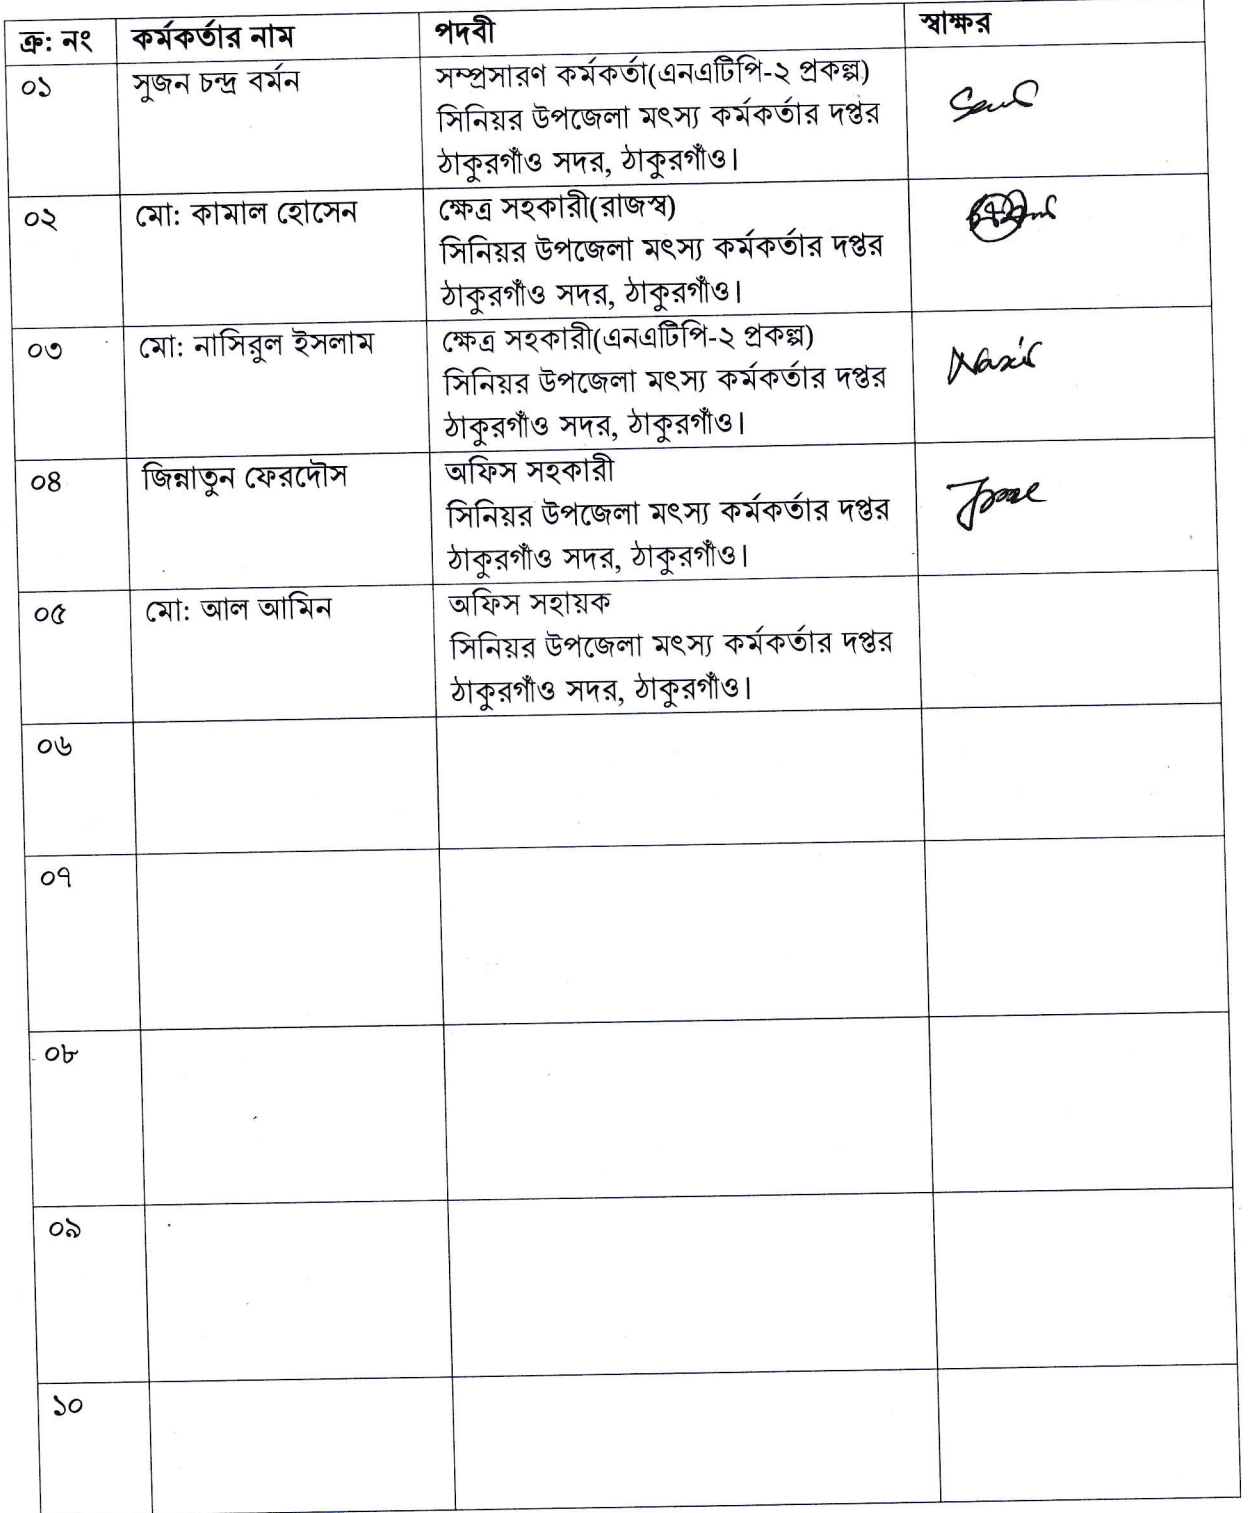 ক্র: নং কর্মকর্তার নাম পদবী স্বাক্ষর
০১ সুজন চন্দ্র বর্মন সম্প্রসারণ কর্মকর্তা(এনএটিপি-২ প্রকল্প)
সিনিয়র উপজেলা মৎস্য কর্মকর্তার দপ্তর
ঠাকুরগাঁও সদর, ঠাকুরগাঁও।
০২ মো: কামাল হোসেন ক্ষেত্র সহকারী(রাজস্ব)
সিনিয়র উপজেলা মৎস্য কর্মকর্তার দপ্তর
ঠাকুরগাঁও সদর, ঠাকুরগাঁও।
০৩ মো: নাসিরুল ইসলাম ক্ষেত্র সহকারী(এনএটিপি-২ প্রকল্প)
সিনিয়র উপজেলা মৎস্য কর্মকর্তার দপ্তর
ঠাকুরগাঁও সদর, ঠাকুরগাঁও।
০৪ জিন্নাতুন ফেরদৌস অফিস সহকারী
সিনিয়র উপজেলা মৎস্য কর্মকর্তার দপ্তর
ঠাকুরগাঁও সদর, ঠাকুরগাঁও।
০৫ মো: আল আমিন অফিস সহায়ক
সিনিয়র উপজেলা মৎস্য কর্মকর্তার দপ্তর
ঠাকুরগাঁও সদর, ঠাকুরগাঁও।
০৬
০৭
০৮
০৯
১০